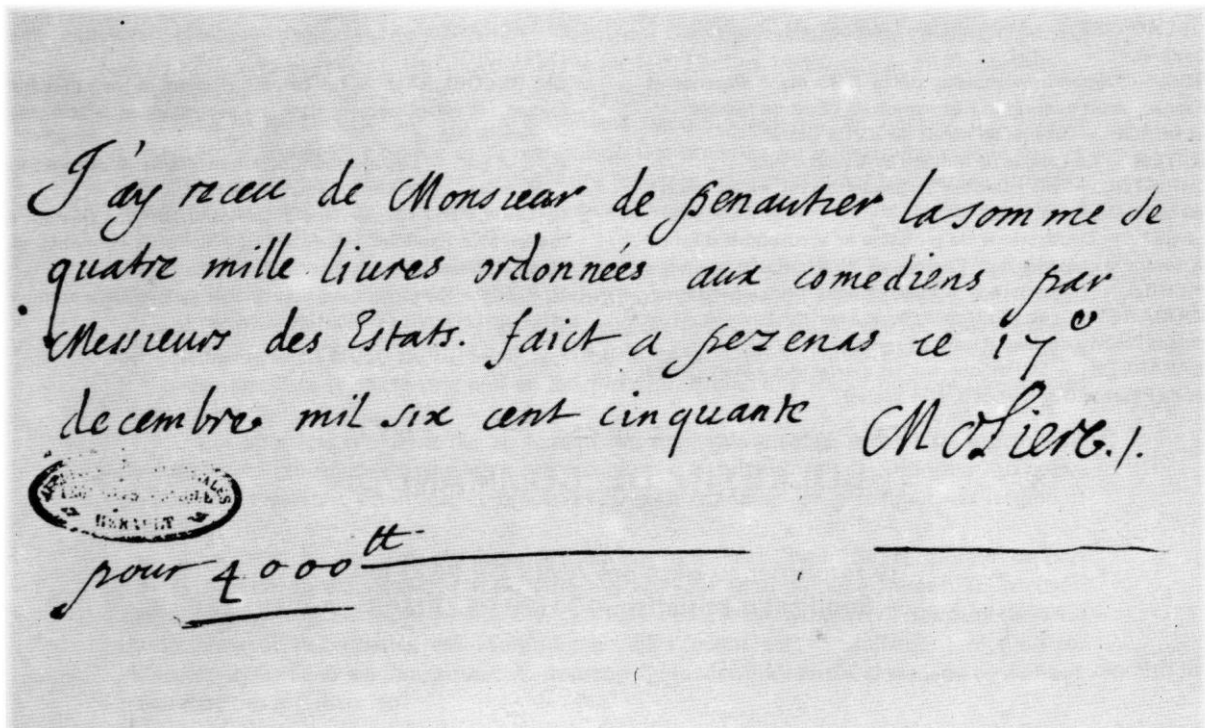 J'ay receu de Monsieur de penautier la somme de
quatre mille liures ordonnées aux comediens par
Messieurs des Estats. faict a pezenas ce 17e
decembre mil six cent cinquante Moliere./.
HERAULT
pour 4000 tt